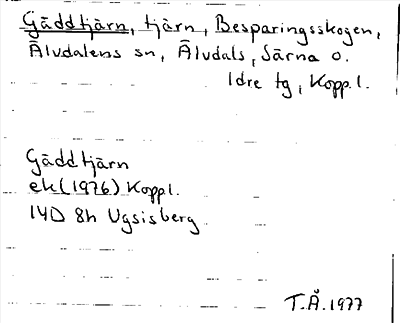 Gäddtjärn, tjärn, Besparingsskogen,
Älvdalens sn, Älvdals, Särna o.
Idre tg, Kopp.l.
Gäddtjärn
ek(1976) Koppl.
14D 8h Ugsisberg
T.Å. 1977